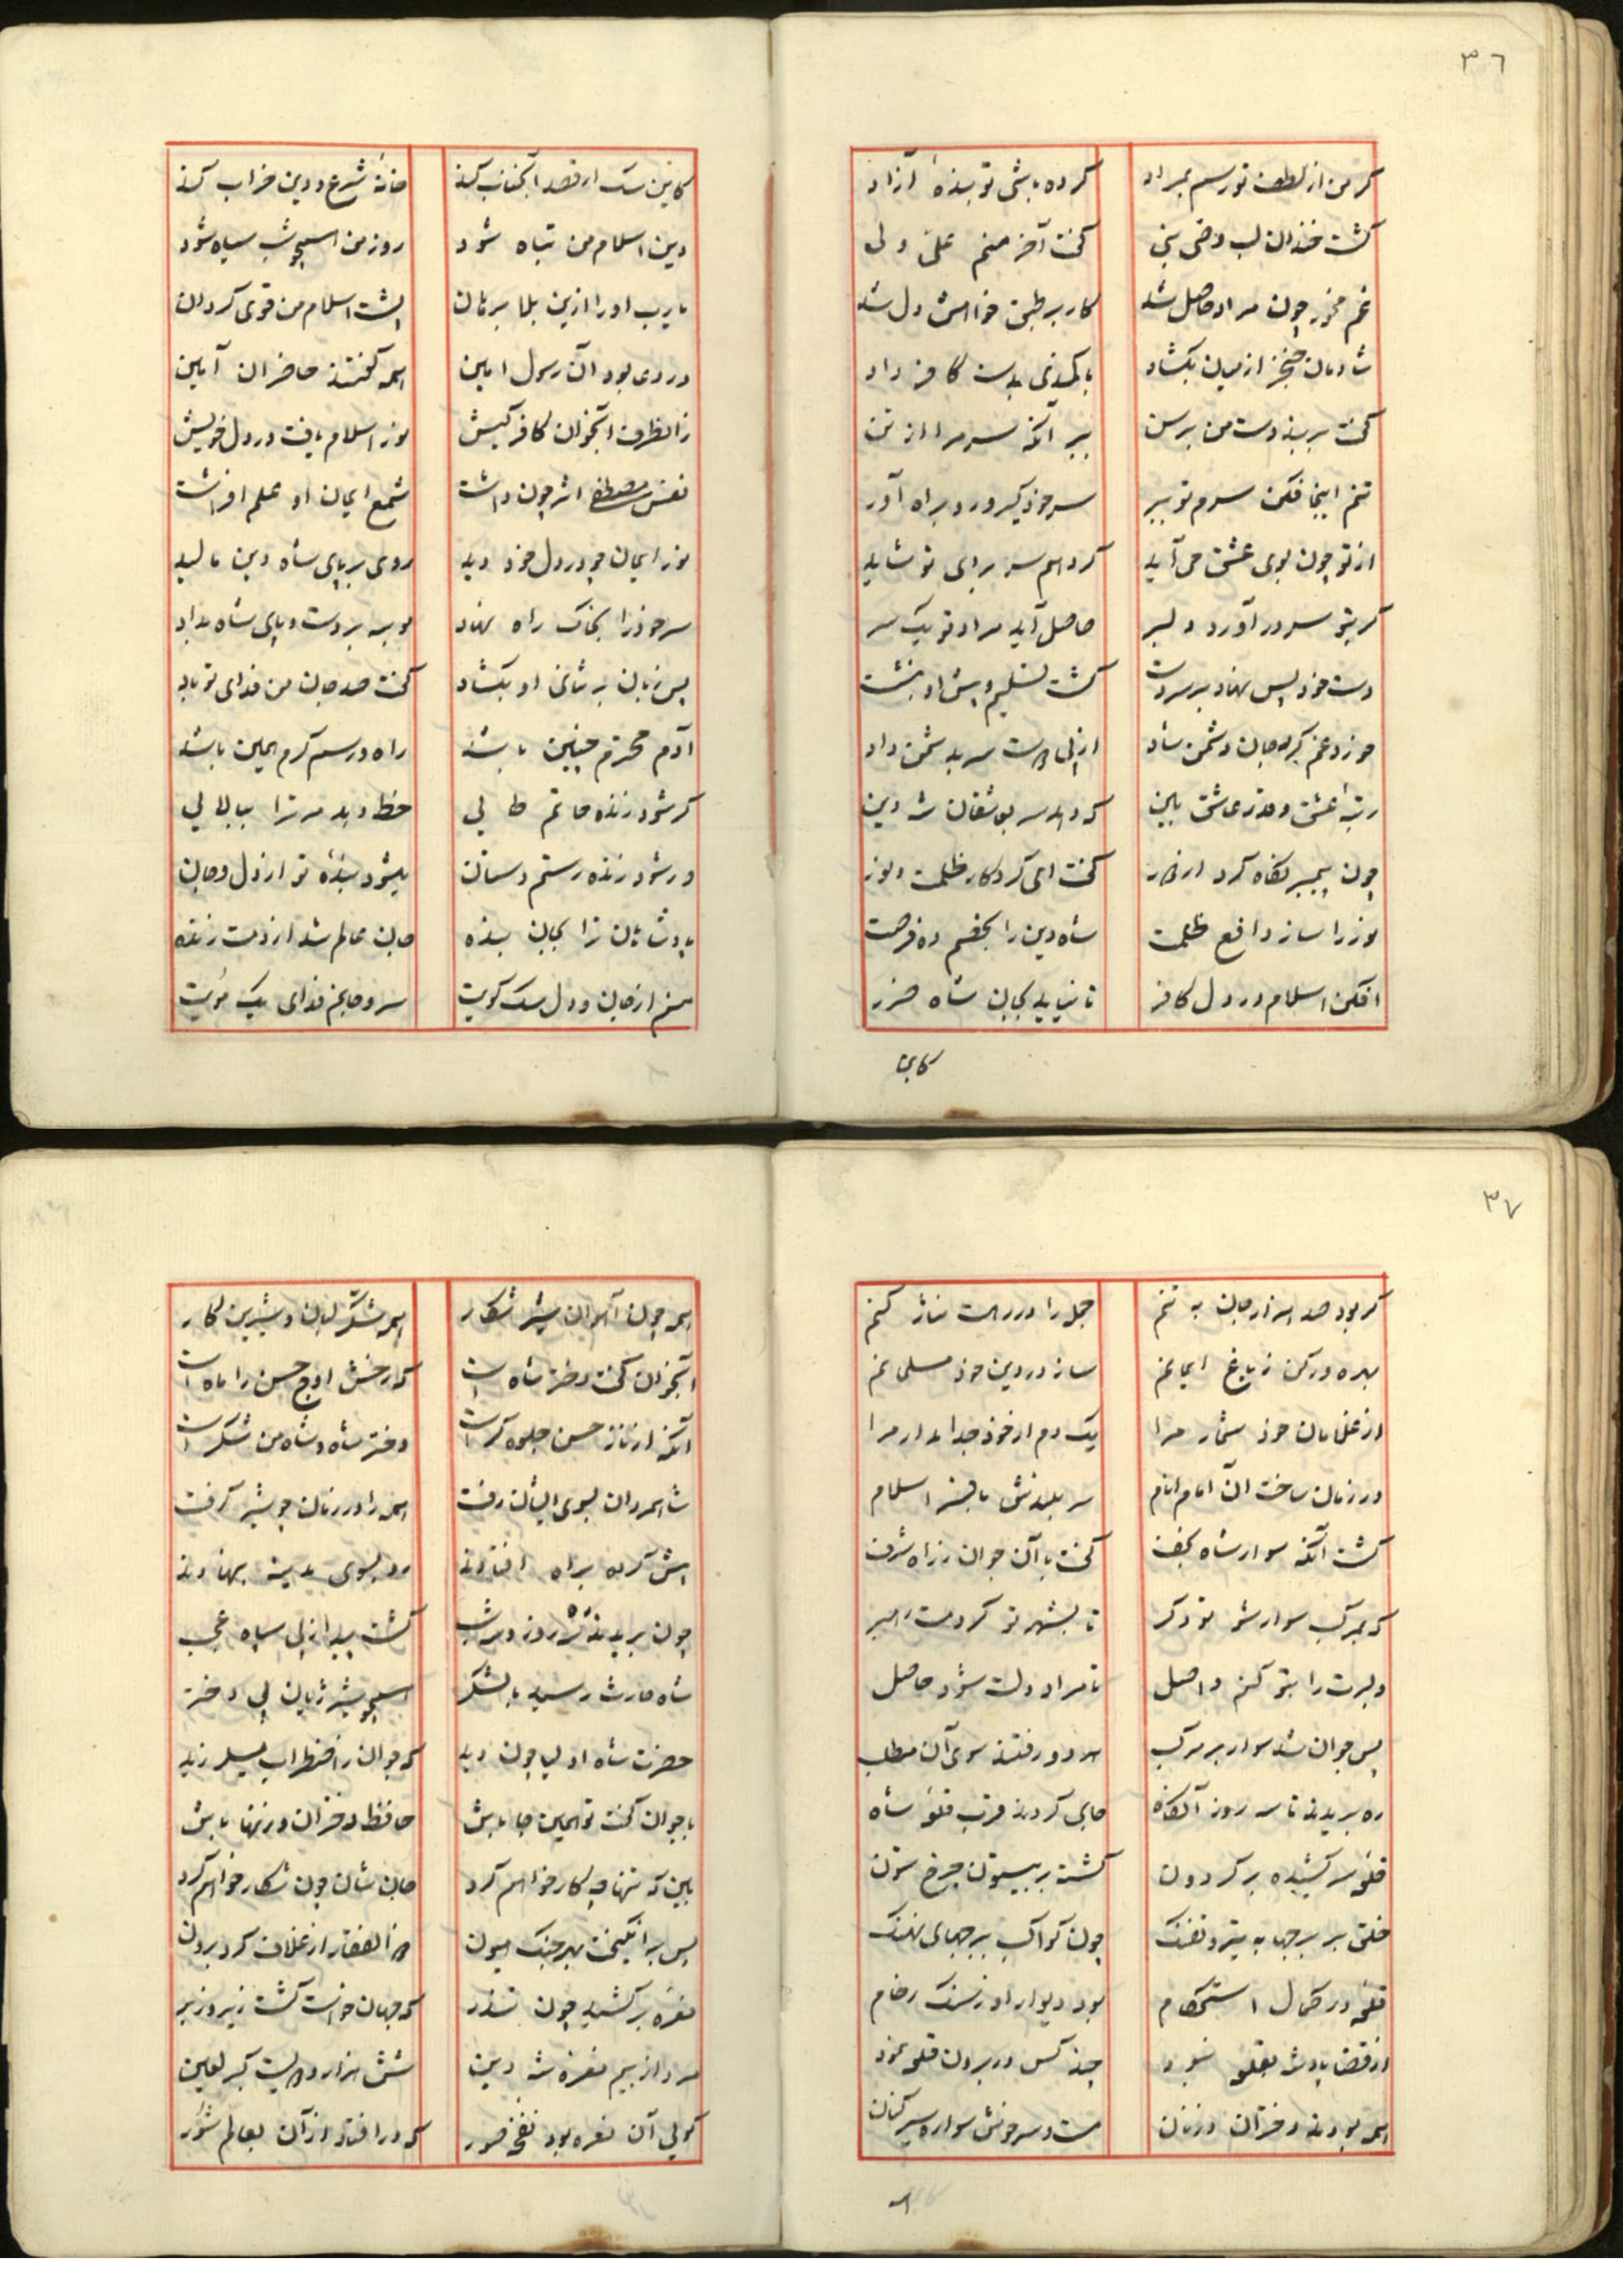 ٣٦
گر من از لطف تو رسم بمراد کرده باشی تو بندهٔ آزاد
گشت خندان لب وصی نبی گفت آخر منم علی ولی
غم مخور چون مراد حاصل شد کار بر طبق خواهش دل شد
شادمان خنجر از میان بگشاد با کمندی بدست کافر داد
گفت بر بند دست من برسن ببر آنگه سر مرا از تن
تنم اینجا فکن سرم تو ببر سر خود گیر و رو براه آور
از تو چون بوی عشق می آید گر دهم سر برای تو شاید
گر بتو سر در آورد دلبر حاصل آید مراد تو یک سر
دست خود پس نهاد بر سر دست گشت تسلیم و پیش او بنشست
خورد غم کرد جان دشمن شاد از پی دوست سر بدشمن داد
رتبهٔ عشق و قدر عاشق بین که دهد سر بعاشقان شه دین
چون پیمبر نگاه کرد از دور گفت ای کردکار ظلمت و نور
نور را ساز دافع ظلمت شاه دین را بخصم ده فرصت
افکن اسلام در دل کافر تا نیاید بجان شاه ضرر
کاین
کاین سگ ار قصد آنجناب کند خانهٔ شرع و دین خراب کند
دین اسلام من تباه شود روز من همچو شب سیاه شود
یا رب او را ازین بلا برهان پشت اسلام من قوی گردان
در دعا بود آن رسول امین همه گفتند حاضران آمین
زانطرف آنجوان کافر کیش نور اسلام یافت در دل خویش
نفس مصطفی اثر چون داشت شمع ایمان او علم افراشت
نور ایمان چو در دل خود دید روی بر پای شاه دین مالید
سر خود را بخاک راه نهاد بوسه بر دست و پای شاه بداد
پس زبان بر ثنای او بگشاد گفت صد جان من فدای تو باد
آدم محترم چنین باشد راه و رسم کرم همین باشد
گر شود زنده حاتم طایی خط دهد مر ترا ببالایی
ور شود زنده رستم دستان میشود بندهٔ تو از دل و جان
پادشاهان ترا بجان بنده جان عالم شد از دمت زنده
منم از جان و دل سگ کویت سر و جانم فدای یک مویت
٣٧
گر بود صد هزار جان به تنم جمله را در رهت نثار کنم
بهره ور کن ز باغ ایمانم ساز در دین خود مسلمانم
از غلامان خود شمار مرا یک دم از خود جدا مدار مرا
در زمان ساخت آن امام انام سر بلندش بافسر اسلام
گشت آنگه سوار شاه نجف گفت با آن جوان ز راه شرف
که بمرکب سوار شو تو دگر تا بشهر تو گردمت رهبر
دلبرت را بتو کنم واصل تا مراد دلت شود حاصل
پس جوان شد سوار بر مرکب هر دو رفتند سوی آن مطلب
ره بریدند تا سه روز آنگاه جای کردند قرب قلعهٔ شاه
قلعه سر کشیده بر گردون گشته بر بیستون چرخ ستون
خلق بر برجها به تیر و تفنگ چون کواکب ببرجهای نهنگ
قلعه در کمال استحکام بود دیوار او ز سنگ رخام
از قضا پادشه بقلعه نبود چند کس در برون قلعه نمود
همه بودند دختران و زنان مست و سرخوش سواره سیر کنان
همه
همه چون آهوان شیر شکار همه شکّر لبان و شیرین کار
آنجوان گفت دختر شاه است که رخش اوج حسن را ماه است
آنکه از ناز حسن جلوه گر است دختر شاه و شاه من شکر است
شاهمردان بسوی ایشان رفت همه را در زمان چو شیر گرفت
پیش کرده براه افتادند رو بسوی مدینه بنهادند
چون بریدند ره سه روز و سه شب گشت پیدا ز پی سپاه عجب
شاه حارث رسید با لشکر همچو شیر ژیان پی دختر
حضرت شاه اولیا چون دید که جوان ز اضطراب میلرزید
با جوان گفت تو همین جا باش حافظ دختران و زنها باش
بین که تنها چه کار خواهم کرد جان شان چون شکار خواهم کرد
پس بر انگیخت بهر جنگ هیون ذوالفقار از غلاف کرد برون
نعره بر کشید چون تندر که جهان خواست گشت زیر و زبر
مرد از بیم نعرهٔ شه دین شش هزار و دویست گبر لعین
گویی آن نعره بود نفخهٔ صور که در افتاد از آن بعالم شور